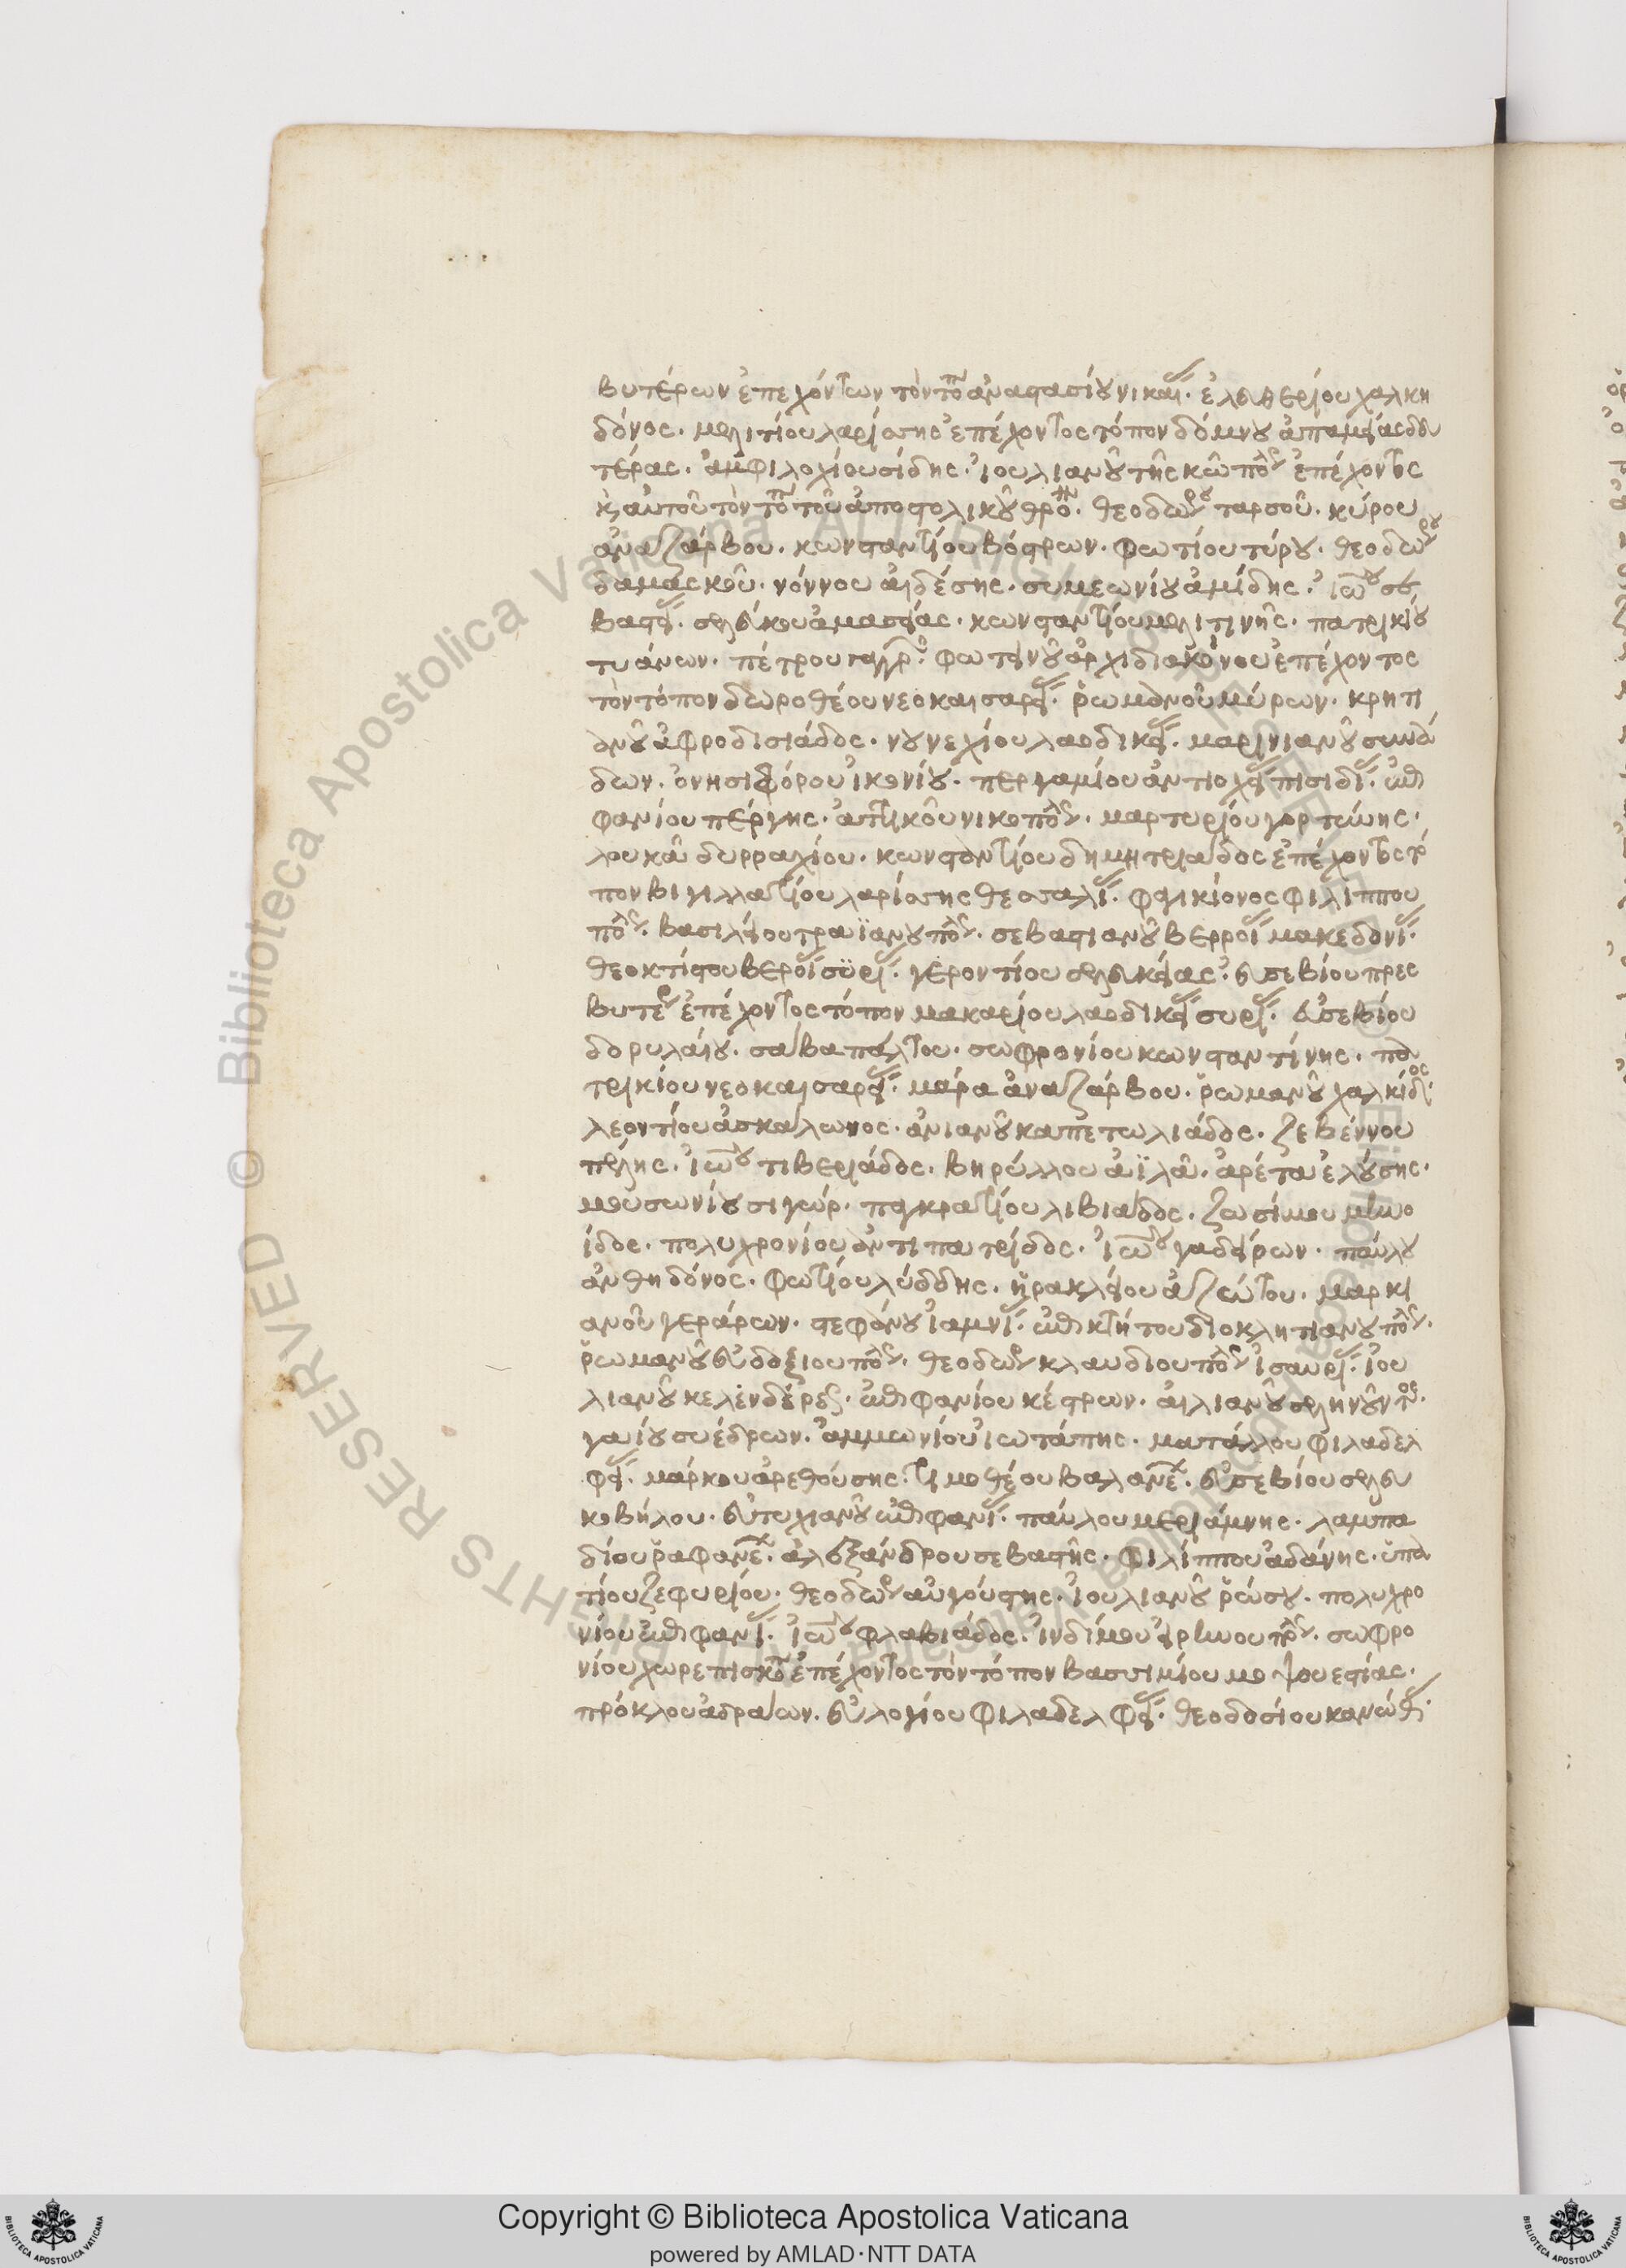 βυτέρων ἐπεχόντων τὸν το΄π ἀναστασίου νικαί. ἐλευθερίου χαλκη
δόνος. μελιτίου λαρίσσης ἐπέχοντος τόπον δόμνου ἀπαμείας δευ
τέρας. ἀμφιλοχίου σίδης. ἰουλιανοῦ τῆς κῶ πόλ ἐπέχοντος
κ αὐτοῦ τὸν το΄π τοῦ ἀποστολικοῦ θρό. θεοδώρου ταρσοῦ. κύρου
ἀναζάρβου. κωνσταντίου βόστρων. φωτίου τύρου. θεοδώρου
δαμάσκου. νόννου αἰδέσης. συμεωνίου ἀμίδης. ἰω σε
βαστεί. σελεύκου ἀμασείας. κωνσταντίου μελιτινῆς. πατρικίου
τυάνων. πέτρου γαγγρ. φωτεινοῦ ἀρχιδιακόνου ἐπέχοντος
τὸν τόπον δωροθέου νεοκαισαρεί. ῥωμανοῦ μύρων. κρητι
ανοῦ ἀφροδισιάδος. νουνεχίου λαοδικεί. μαρινιανοῦ συνά
δων. ὀνησιφόρου ἰκονίου. περγαμίου ἀντιοχεί πισιδί. ἐπι
φανίου πέργης. ἀττικοῦ νικοπόλ. μαρτυρίου γορτύνης.
λουκᾶ δυρραχίου. κωνσταντίου δημητριάδος ἐπέχοντος τό
πον βιγιλλαντίου λαρίσσης θεσσαλί. φρικίονος φιλίππου
πόλ. βασιλείου τραϊανουπόλ. σεβαστιανοῦ βερροί μακεδονί.
θεοκτίστου βεροί συρί. γεροντίου σελευκείας. εὐσεβίου πρεσ
βυτέρ ἐπέχοντος τόπον μακαρίου λαοδικεί συρί. εὐσεβίου
δορυλάιου. σάβα πάλτου. σωφρονίου κωνσταντίνης. πα
τρικίου νεοκαισαρεί. μάρα ἀναζάρβου. ῥωμανοῦ χαλκίδος
λεοντίου ἀσκάλωνος. ἀνιανοῦ καπετωλιάδος. ζεβέννου
πέλης. ἰω τιβεριάδος. βηρύλλου ἀϊλᾶ. ἀρέτα ἐλούσης.
μουσωνίου σιγώρ. παγκρατίου λιβιάδος. ζωσίμου μινο
ίδος. πολυχρονίου ἀντιπατρίδος. ἰω γαδείρων. παύλου
ἀνθηδόνος. φωτίου λύδδης. ἡρακλείου ἀζώτου. μαρκι
ανοῦ γεράρων. στεφάνου ἰαμνί. ἐπικτήτου διοκλητιανουπόλ.
ῥωμανοῦ εὐδοξιουπόλ. θεοδώρ κλαυδιουπόλ ἰσαυρί. ἰου
λιανοῦ κελενδέρεως. ἐπιφανίου κέστρων. αἰλιανοῦ σελινοῦντος.
γαίου συέδρων. ἀμμωνίου ἰωτάπης. ματάλλου φιλαδελ
φεί. μάρκου ἀρεθούσης. τιμοθέου βαλανέ. εὐσεβίου σελευ
κοβήλου. εὐτυχιανοῦ ἐπιφανί. παύλου μεριάμνης. λαμπα
δίου ῥαφανέ. ἀλεξάνδρου σεβαστῆς. φιλίππου ἀδάνης. ὑπα
τίου ζεφυρίου. θεοδώρ αὐγούστης. ἰουλιανοῦ ῥώσου. πολυχρο
νίου ἐπιφανί. ἰω φλαβιάδος. ἰνδίμου εἰρηνουπόλ. σωφρο
νίου χωρεπισκό ἐπέχοντος τὸν τόπον βασσιμίου μοψουεστίας.
πρόκλου ἀδράων. εὐλογίου φιλαδελφεί. θεοδοσίου κανώθ.